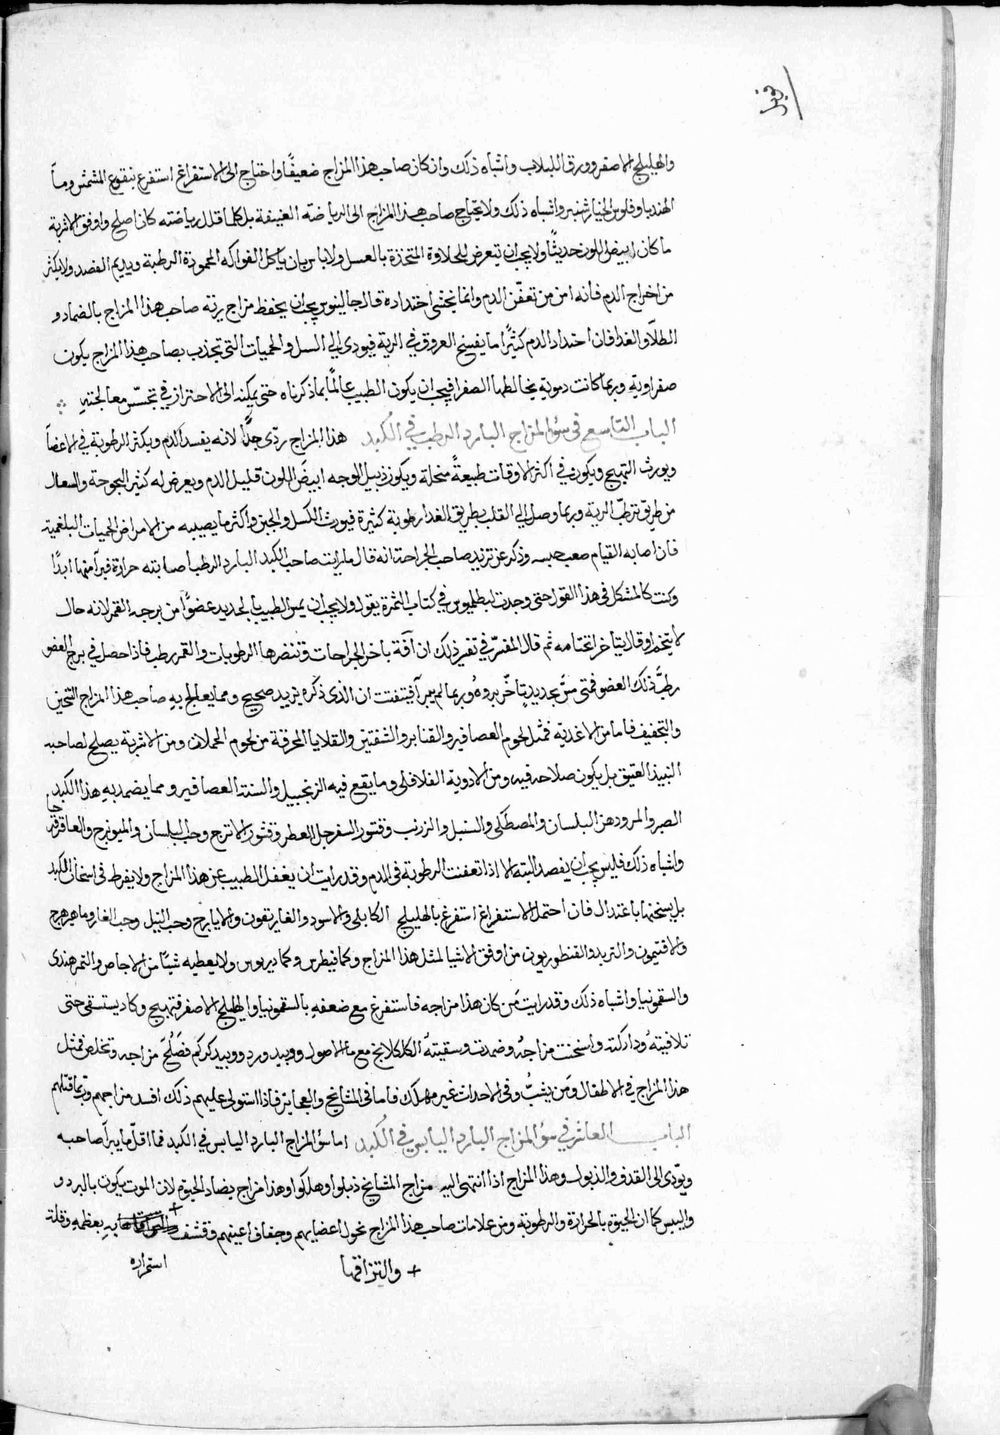 والهليلج الاصفر وورق اللبلاب واشباه ذلك وان كان صاحب هذا المزاج ضعيفًا واحتاج الى الاستفراغ استفرغ بنقوع المشمش وماء
الهندبا وفلوس الخيارشنبر واشباه ذلك ولا يحتاج صاحب هذا المزاج الى الرياضة العنيفة بل كلما قلل رياضته كان اصلح واوفق الاشربة
ما كان ابيض اللون حديثًا ولا يجب ان يتعرض للحلاوة المتخذة بالعسل ولا باس بان ياكل الفواكه المحمودة الرطبة ويديم الفصد ولا يكثر
من اخراج الدم فانه امن من تعفن الدم وانما يخشى احتداده قال جالينوس يجب ان يحفظ مزاج رية صاحب هذا المزاج بالضماد و
الطلا والغذا فان احتداد الدم كثيرًا ما يفسخ العروق في الرية فيودي الى السل والحميات التي تحدث بصاحب هذا المزاج يكون
صفراوية وربما كانت دموية يخالطها الصفرا فيجب ان يكون الطبيب عالمًا بما ذكرناه حتى يمكنه الاحتراز في معالجته
الباب التاسع في سؤ المزاج البارد الرطب في الكبد هذا المزاج ردى جدًا لانه يفسد الدم ويكثر الرطوبة في الاعضا
ويورث التهبج ويكون في اكثر الاوقات طبيعة منحلة ويكون الوجه ابيض اللون قليل الدم ويعرض له كثير البحوحة والسعال
من طريق ترطب الرية وربما وصل الى القلب بطريق الغذا رطوبة كثيرة فيورث الكسل والجبن واكثر ما يصيبه من الامراض الحميات البلغمية
فان اصابه القيام صعب حبسه وذكر عن يزيد صاحب الجراحة انه قال ما رايت صاحب الكبد البارد الرطب اصابته حرارة فبرا منها ابدًا
وكنت كالمشكل في هذا القول حتى وجدت لبطلميوس في كتاب الثمرة يقول ولا يجب ان يمس الطبيب بالحديد عضوًا من برجه القمر لانه حال
لا يتخمر او قال يتاخر اغتمامه ثم قال المفسر في تفسير ذلك ان آفة باخر الجراحات وتنضرها الرطوبات والقمر رطب فاذا حصل في برج العضو
رطب ذلك العضو فمتى مس بحديد يتاخر بروه وربما لم يبرا فيتفقت ان الذي ذكره يزيد صحيح ومما يعالج به صاحب هذا المزاج التسخين
والتجفيف فاما من الاغذية فمثل لحوم العصافير والقنابر والشفنين والقلايا المحرقة من لحوم الحملان ومن الاشربة يصلح لصاحبه
النبيذ العتيق بل يكون صلاحه فيه ومن الادوية الفلافلي وما يقع فيه الزنجبيل والسنة العصافير ومما يضمد به هذا الكبد
الصبر والمر ودهن البلسان والمصطكى والسنبل والزرنب وقشور السفرجل العطر وقشور الاترج وحب البلسان والميويزج والعاقرقرحا
واشباه ذلك فليس يجب ان يفصد البتة الا اذا تعفنت الرطوبة في الدم وقد رايت ان يغفل الطبيب عن هذا المزاج ولا يفرط في اسخان الكبد
بل يسخنها باعتدال فان احتمل الاستفراغ استفرغ بالهليلج الكابلي والاسود والغاريقون والايارج وحب النيل وحب الغار وماهيزهرج
والافتيمون والتربد والقنطوريون من اوفق الاشيا لمثل هذا المزاج وكمافيطوس وكمادريوس ولا يعطيه شيئًا من الاجاص والتمر هندى
والسقمونيا واشباه ذلك وقد رايت من كان هذا مزاجه فاستفرغ مع ضعفه بالسقمونيا والهليلج الاصفر فتهبج وكاد يستسقى حتى
تلافيته وداركته واسخنت مزاجه وضمدت وسقيته الكلكلانج مع ما الاصول ودبيد ورد ودبيد كركم فصلح مزاجه وتخلص فمثل
هذا المزاج في الاطفال ومن يشب وفي الاحداث غير مهلك فاما في المشايخ والعجايز فاذا استولى عليهم ذلك افسد مزاجهم وربما قتلهم
الباب العاشر في سؤ المزاج البارد اليابس في الكبد اما سؤ المزاج البارد اليابس في الكبد فما اقل ما يبرا صاحبه
ويؤدى الى القذف والذبول وهذا المزاج اذا انتهى اليه مزاج المشايخ ذبلوا وهلكوا وهذا مزاج يضاد الحيوة لان الموت يكون بالبرد و
واليبس كما ان الحيوة بالحرارة والرطوبة ومن علامات صاحب هذا المزاج نحول اعضايهم وجفاف اعينهم وقشف + به بعظمه وقلة
+ والتزاقها
استمراره